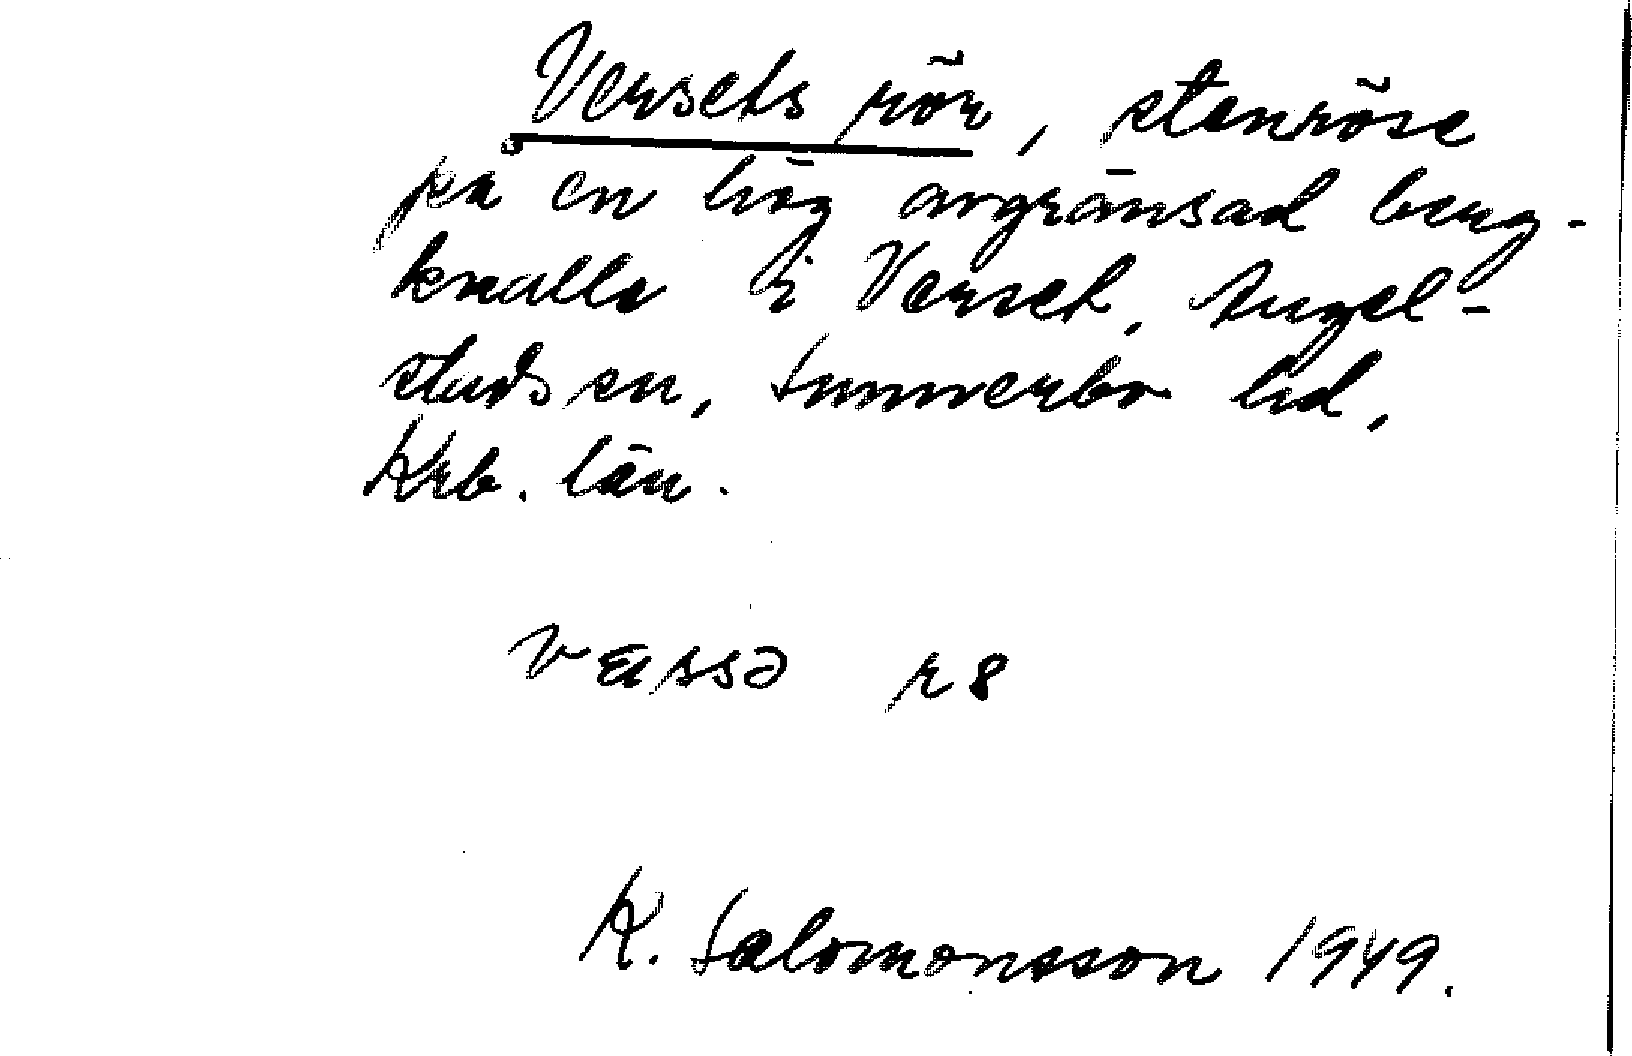 Versets rör, stenröse
på en hög avgränsad berg-
knalle i Verset, Angel-
stads sn, Sunnerbo hd,
Krb. län.
væssə r8
K. Salomonsson 1949.